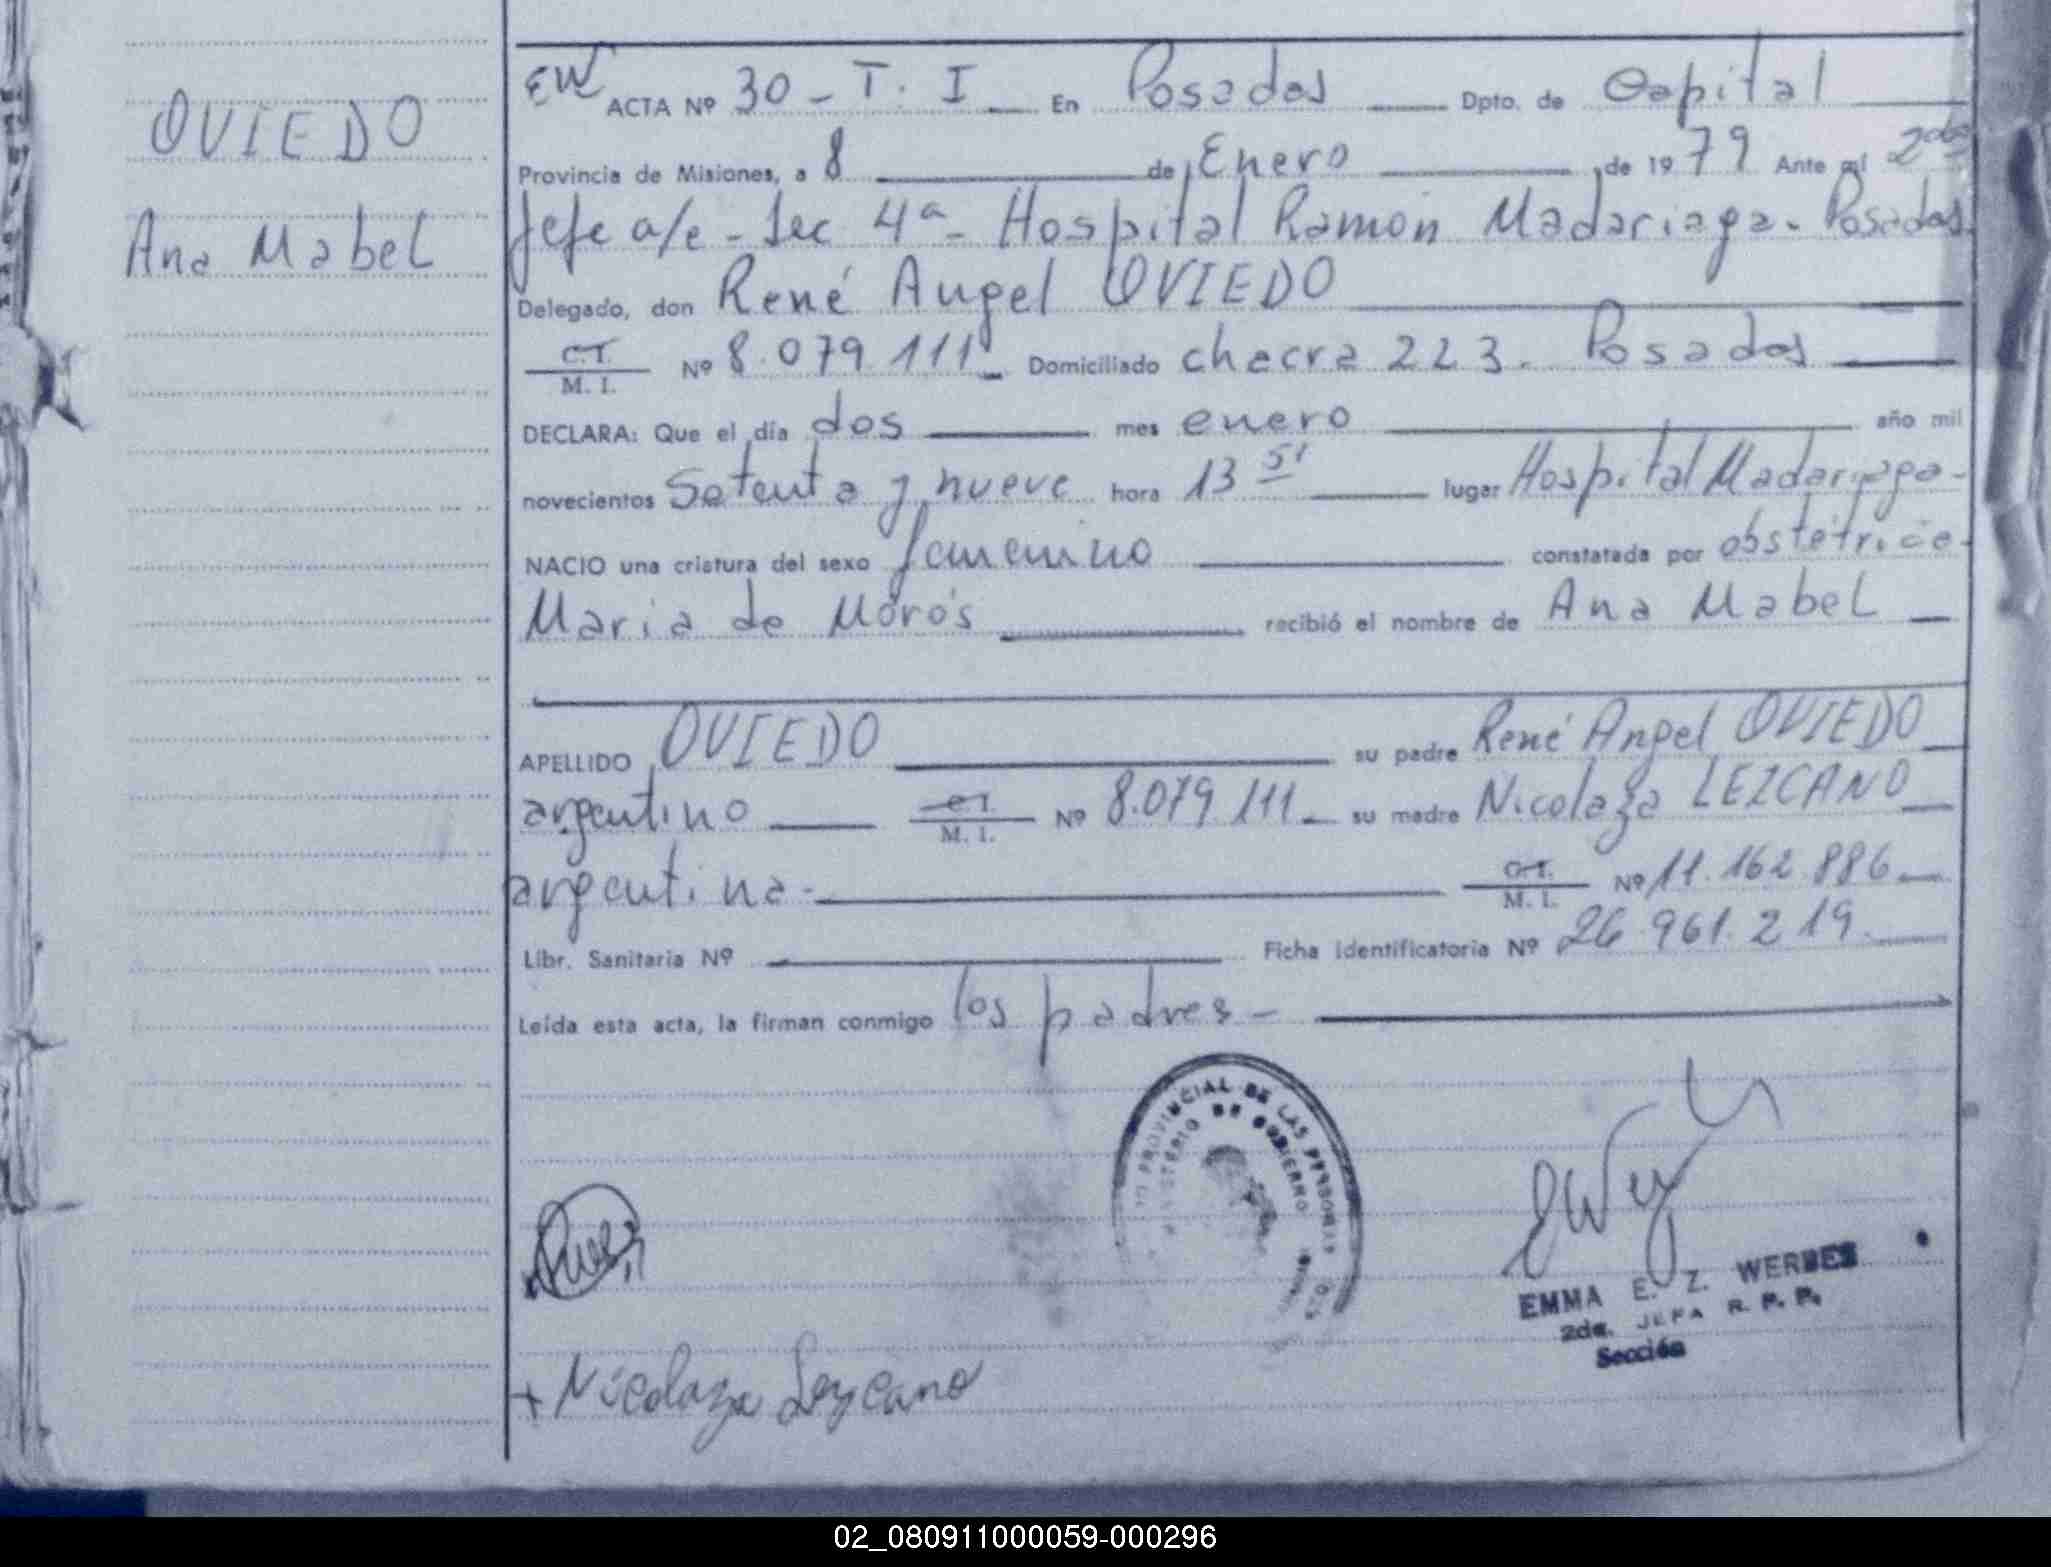 OVIEDO
Ana Mabel
EW ACTA Nº 30 - T. I En Posadas Dpto. de Capital
Provincia de Misiones, a 8 de Enero de 1979 Ante mi 2da
Jefe a/e - Sec 4ª - Hospital Ramón Madariaga - Posadas
Delegado, don René Angel OVIEDO
C.I. M. I. Nº 8.079.111 Domiciliado chacra 223. Posadas
DECLARA: Que el día dos mes enero año mil
novecientos Setenta y nueve hora 13 51 lugar Hospital Madariaga -
NACIO una criatura del sexo femenino constatada por obstétrica
Maria de Morós recibió el nombre de Ana Mabel
APELLIDO OVIEDO su padre René Angel OVIEDO
argentino C.I. M. I. Nº 8.079.111 su madre Nicolaza LEZCANO
argentina - C.I. M. I. Nº 11.162.886
Libr. Sanitaria Nº Ficha Identificatoria Nº 26.961.219.
Leída esta acta, la firman conmigo los padres -
PROVINCIAL DE LAS PERSONAS
DE GOBIERNO
EMMA E. Z. WERBES
2da. JEFA R. P. P.
Sección
+ Nicolaza Lezcano
02_080911000059-000296